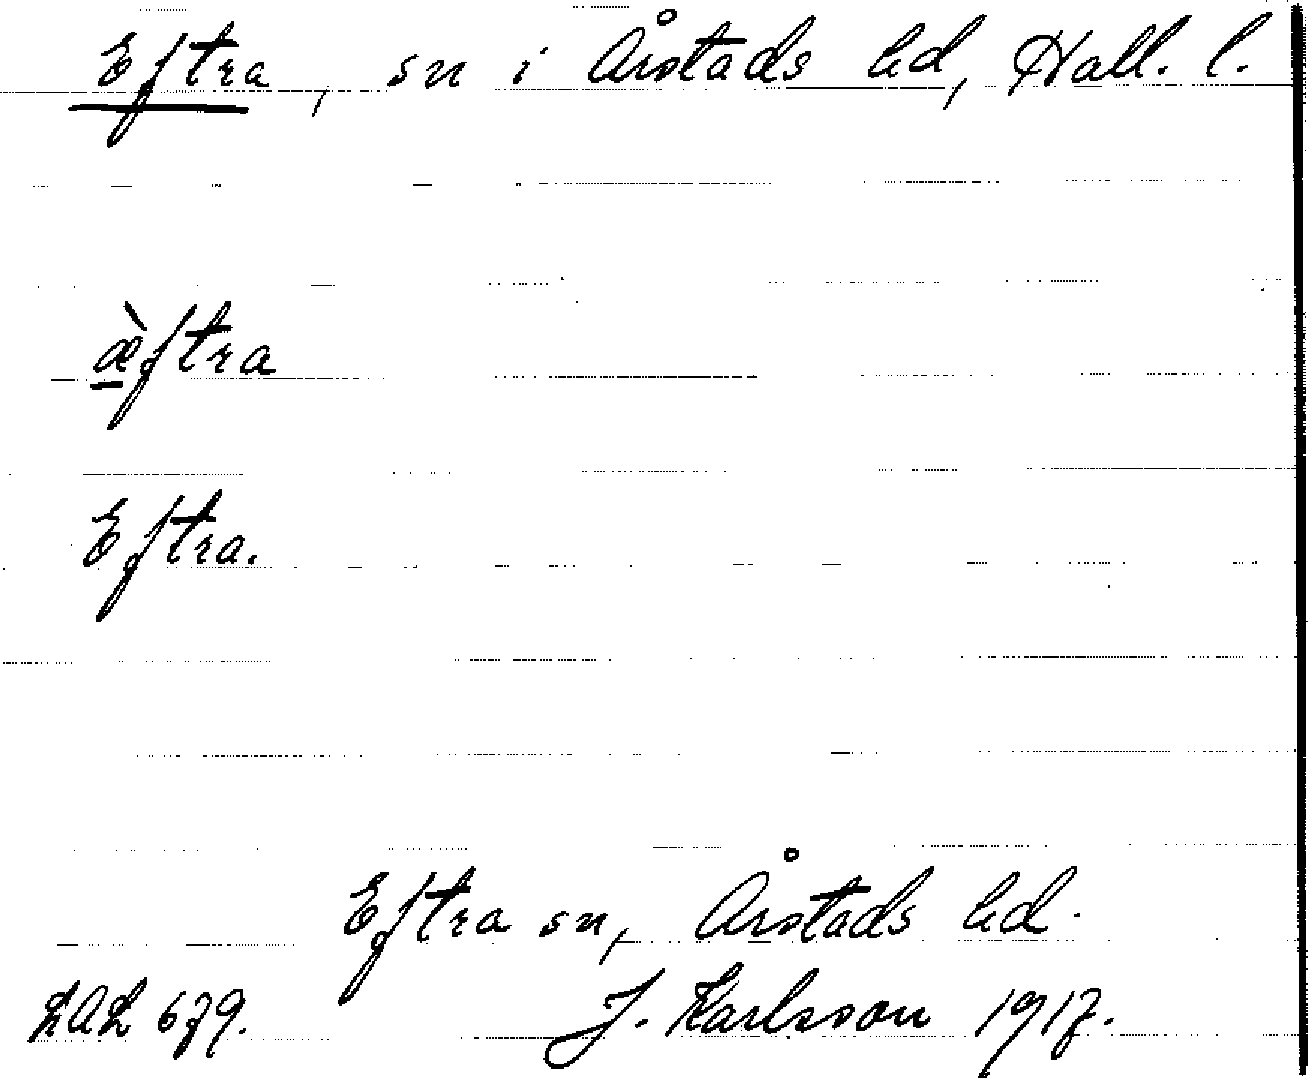 Eftra, sn i Årstads hd, Hall. l.
æ̀ftra
Eftra.
Eftra sn, Årstads hd.
LAL 679. J. Karlsson 1917.